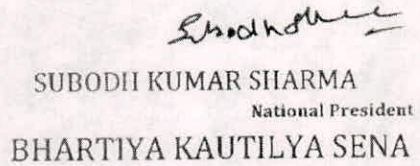 Subodh
SUBODH KUMAR SHARMA
National President
BHARTIYA KAUTILYA SENA